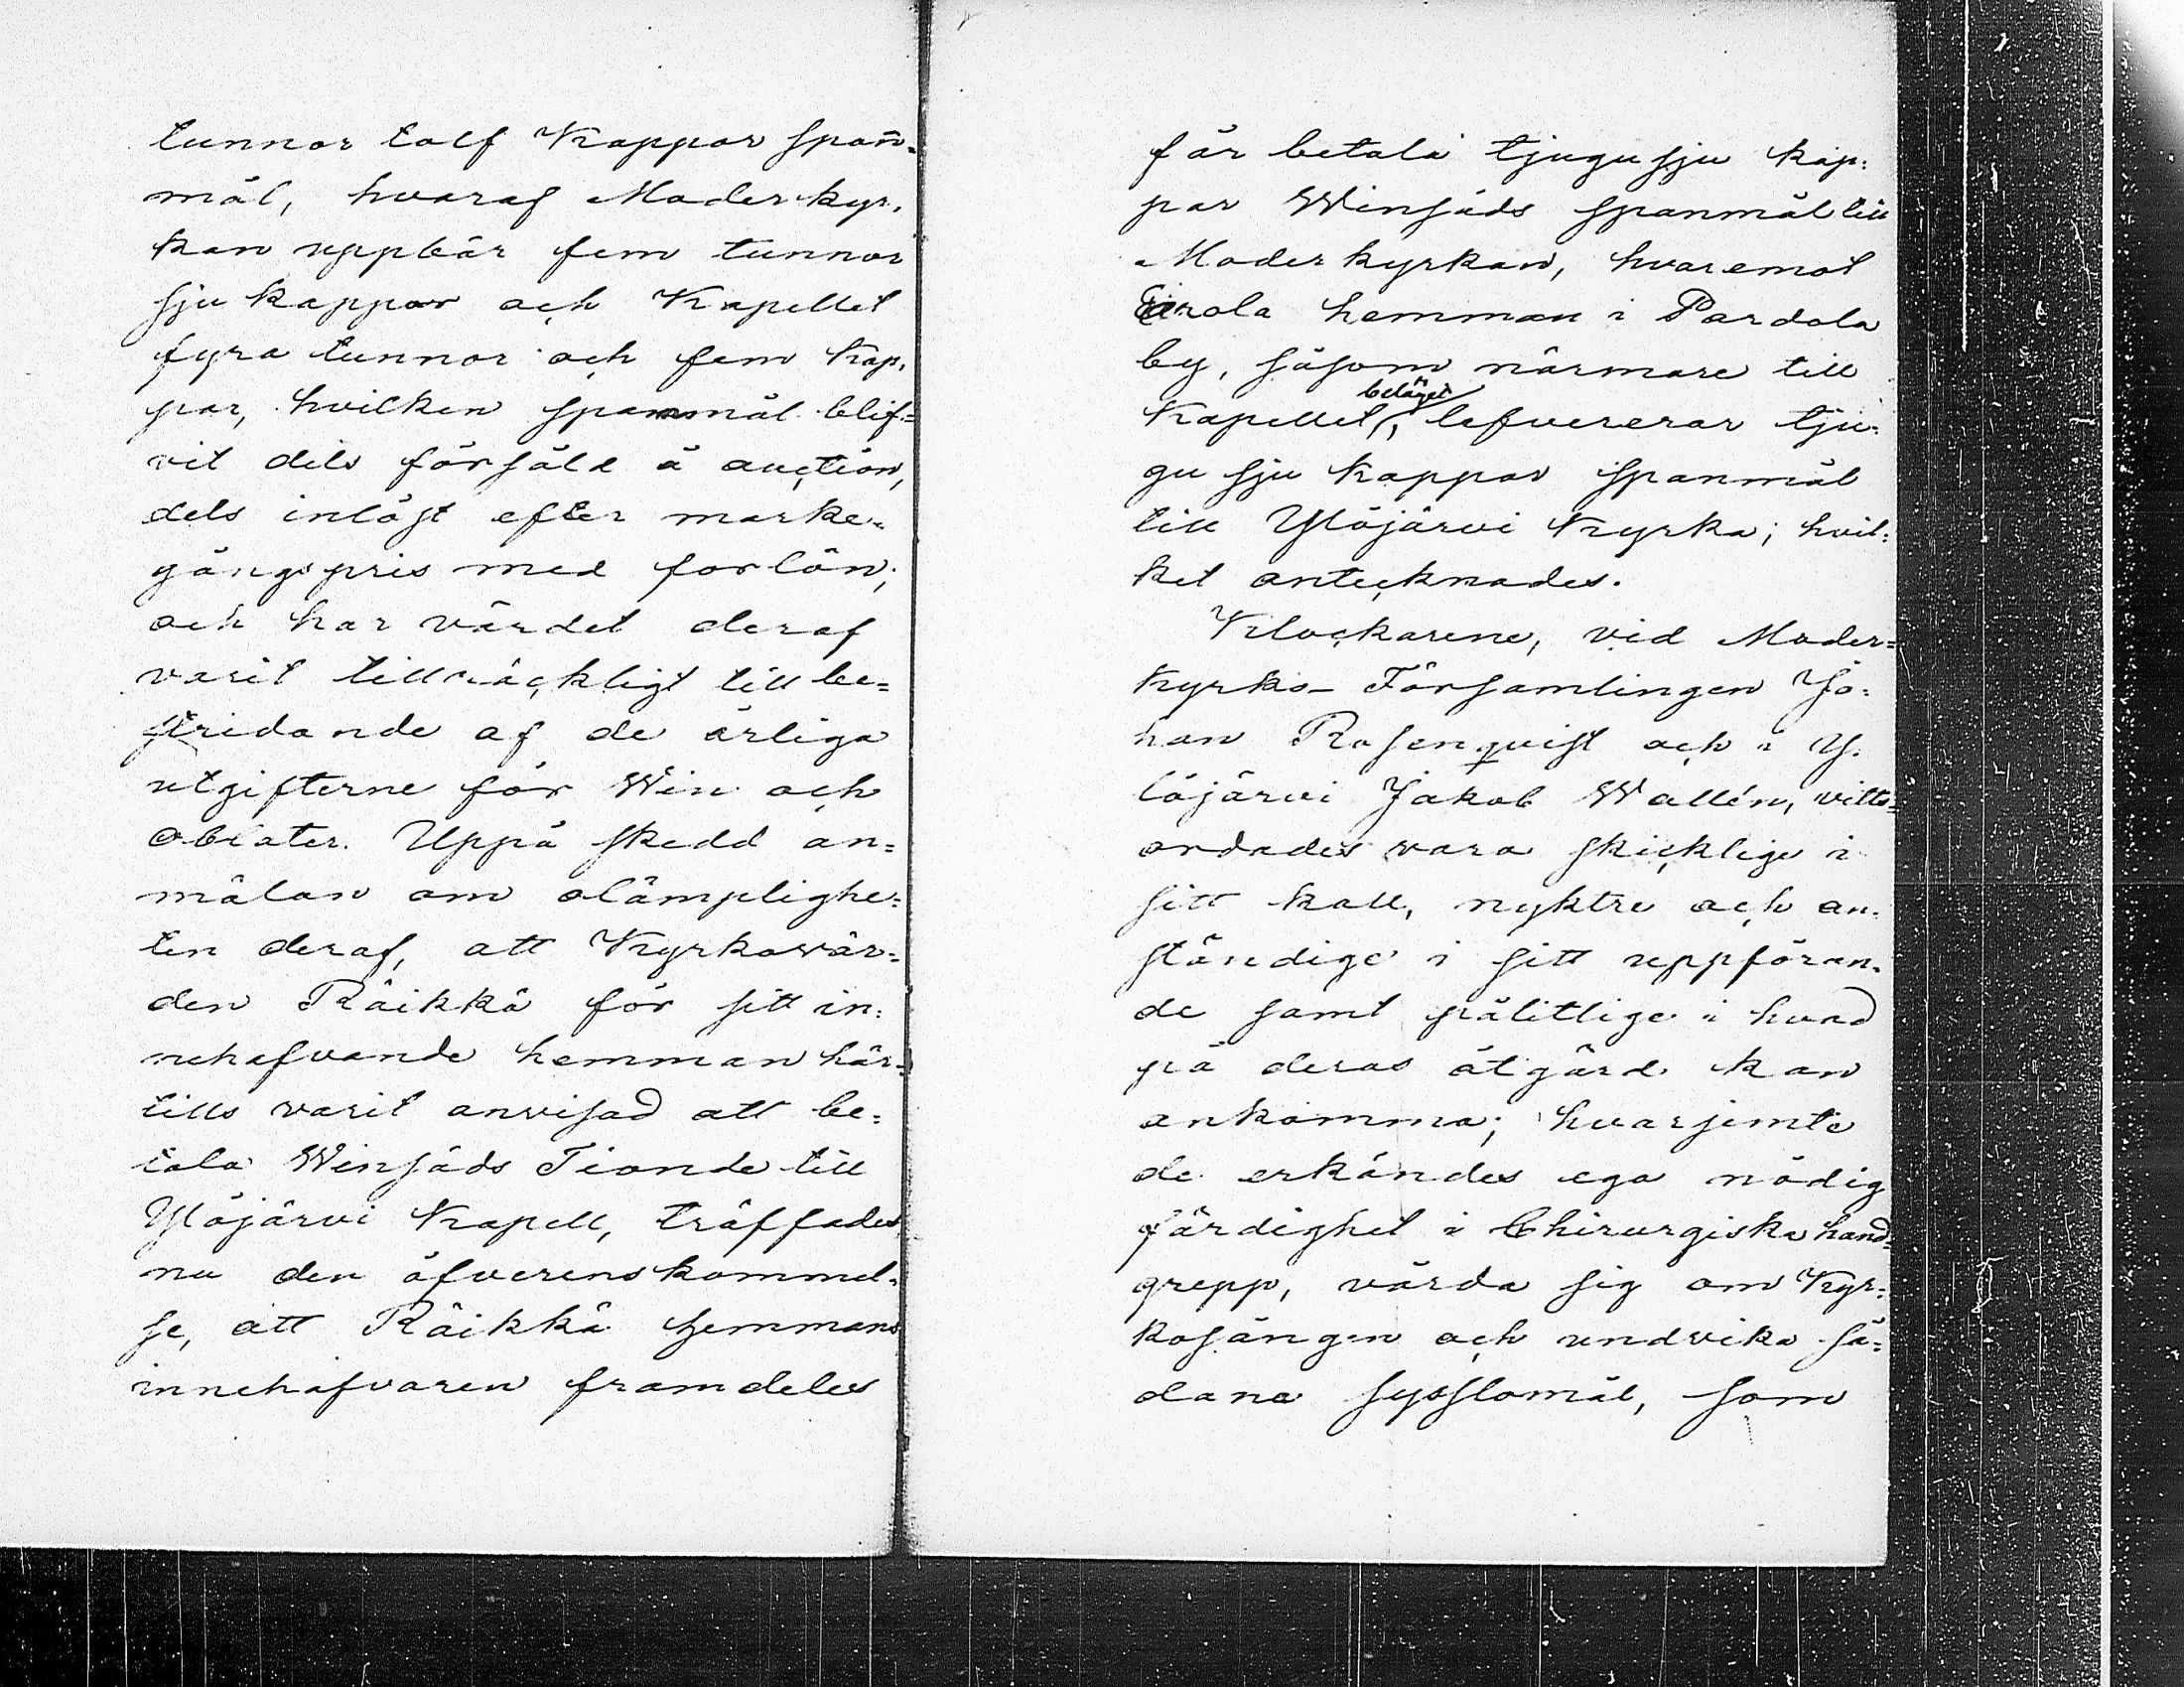 tunnor tolf Kappar span̄-
mål, hvaraf Moderkyr-
kan uppbär fem tunnor
sju kappar och Kapellet
fyra tunnor och fem kap-
par, hvilken spannmål blif-
vit dels försåld å auction,
dels inlöst efter marke-
gångspris med forlön;
och har värdet deraf
varit tillräckligt till be-
stridande af de årliga
utgifterne för Win och
oblater. Uppå skedd an-
mälan om olämplighe-
ten deraf, att Kyrkovär-
den Räikkä för sitt in-
nehafvande hemman här-
tills varit anvisad att be-
tala Winsäds Tionde till
Ylöjärvi Kapell, träffades
nu den öfverenskommel-
se, att Räikkä hemmans
innehafvaren framdeles
får betala tjugusju kap-
par Winsäds spanmål till
Moderkyrkan, hvaremot
Eerola hemman i Pardola
by, såsom närmare till
Kapellet beläget, lefvererar tju-
gu sju kappar spanmål
till Ylöjärvi Kyrka; hvil-
ket antecknades.
Klockarene, vid Moder-
kyrko-Församlingen Jo-
han Rosenqvist och i Y-
löjärvi Jakob Wallén, vitts-
ordades vara skicklige i
sitt kall, nyktre och an-
ständige i sitt uppföran-
de samt pålitlige i hvad
på deras åtgärd kan
ankomma; hvarjemte
de erkändes ega nödig
färdighet i Chirurgiska hand-
grepp, vårda sig om Kyr-
kosången och undvika så-
dana sysslomål, som